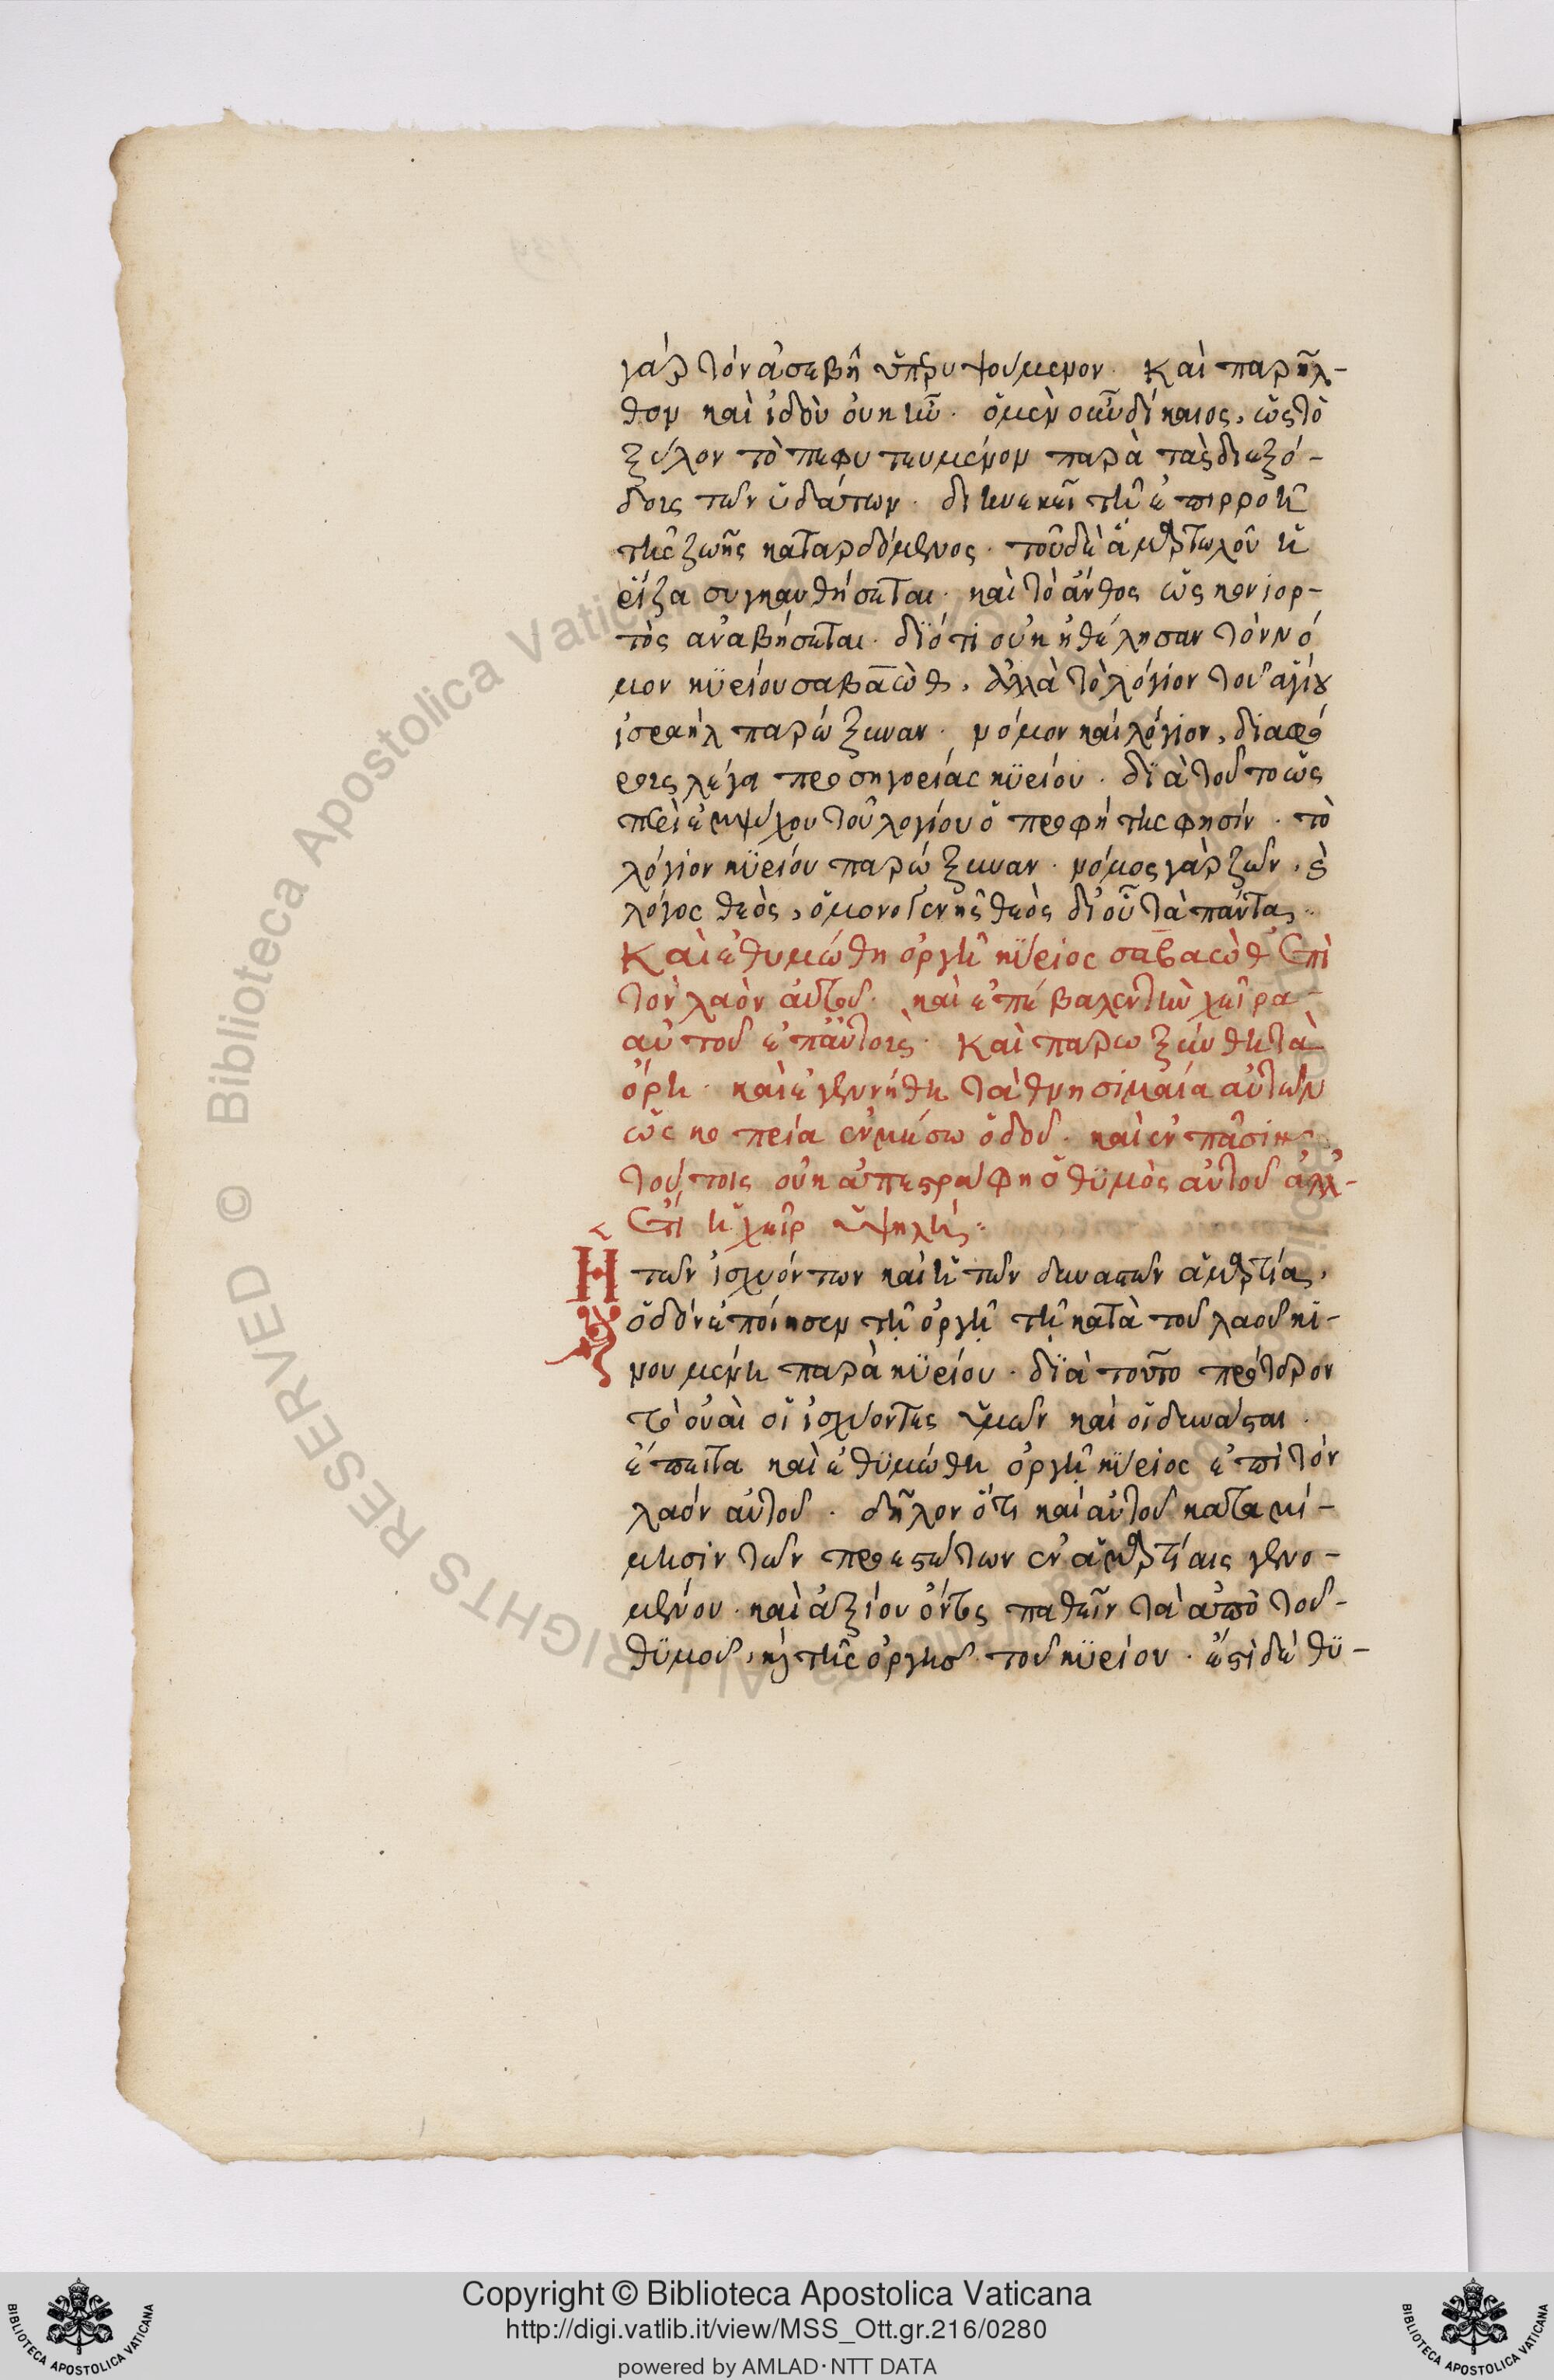 γάρ τόν ἀσεβῆ ὑπερυψούμενον. Καὶ παρῆλ-
θον καὶ ἰδοὺ οὐκ ἦν. ὁ μὲν οὖν δίκαιος, ὡς τὸ
ξύλον τὸ πεφυτευμένον παρὰ τὰς διεξό-
δοις τῶν ὑδάτων. διηνεκεῖ τῇ ἐπιρροῇ
τῆς ζωῆς καταρδόμενος. τοῦ δὲ ἁμαρτωλοῦ ἡ
ῥίζα συγκαυθήσεται. καὶ τὸ ἄνθος ὡς κονιορ-
τὸς ἀναβήσεται. διότι οὐκ ἠθέλησαν τὸν νό
μον κϋρίου σαβαὼθ, ἀλλὰ τὸ λόγιον τοῦ ἁγίου
ἰσραὴλ παρώξυναν. νόμον καὶ λόγιον, διαφό
ροις λέγει προσηγορίας κϋρίου. διὰ τοῦτο ὡς
περὶ ἐμψύχου τοῦ λογίου ὁ προφήτης φησίν. τὸ
λόγιον κϋρίου παρώξυναν. νόμος γὰρ ζῶν, καὶ
λόγος θεὸς, ὁ μονογενὴς θεὸς δι' οὗ τὰ πάντα.
Καὶ ἐθυμώθη ὀργῇ κύριος σαβαὼθ ἐπὶ
τὸν λαὸν αὐτοῦ. καὶ ἐπέβαλεν τὴν χεῖρα
αὐτοῦ ἐπ' αὐτοὶς. Καὶ παρωξύνθη τὰ
ὄρη. καὶ ἐγενήθη τὰ θνησιμαία αὐτῶν
ὡς κοπρία ἐν μέσω ὁδοῦ. καὶ ἐν πᾶσι
τούτοις οὐκ ἀπεστράφη ὁ θϋμὸς αὐτοῦ ἀλλ-
ἔτι ἡ χεῖρ ὑψηλή:
Ἡ τῶν ἰσχυόντων καὶ ἡ τῶν δυναστῶν ἁμαρτία,
ὁδὸν ἐποίησεν τῇ ὀργῇ τῇ κατὰ τοῦ λαοῦ κι-
νουμένη παρὰ κϋρίου. διὰ τοῦτο πρότερον
τὸ οὐαὶ οἱ ἰσχύοντες ὑμῶν καὶ οἱ δυνάσται.
ἔπειτα καὶ ἐθϋμώθη ὀργῇ κϋριος ἐπὶ τὸν
λαόν αὐτοῦ. δῆλον ὅτι καὶ αὐτοῦ κατα μί-
μησιν τῶν προεστώτων ἐν ἁμαρτίαις γενο-
μένου. καὶ ἀξίου ὄντος παθεῖν τὰ ἀπὸ τοῦ-
θϋμοῦ, καὶ τῆς ὀργῆς τοῦ κϋρίου. ἔστι δέ θϋ-
Copyright © Biblioteca Apostolica Vaticana
http://digi.vatlib.it/view/MSS_Ott.gr.216/0280
powered by AMLAD·NTT DATA